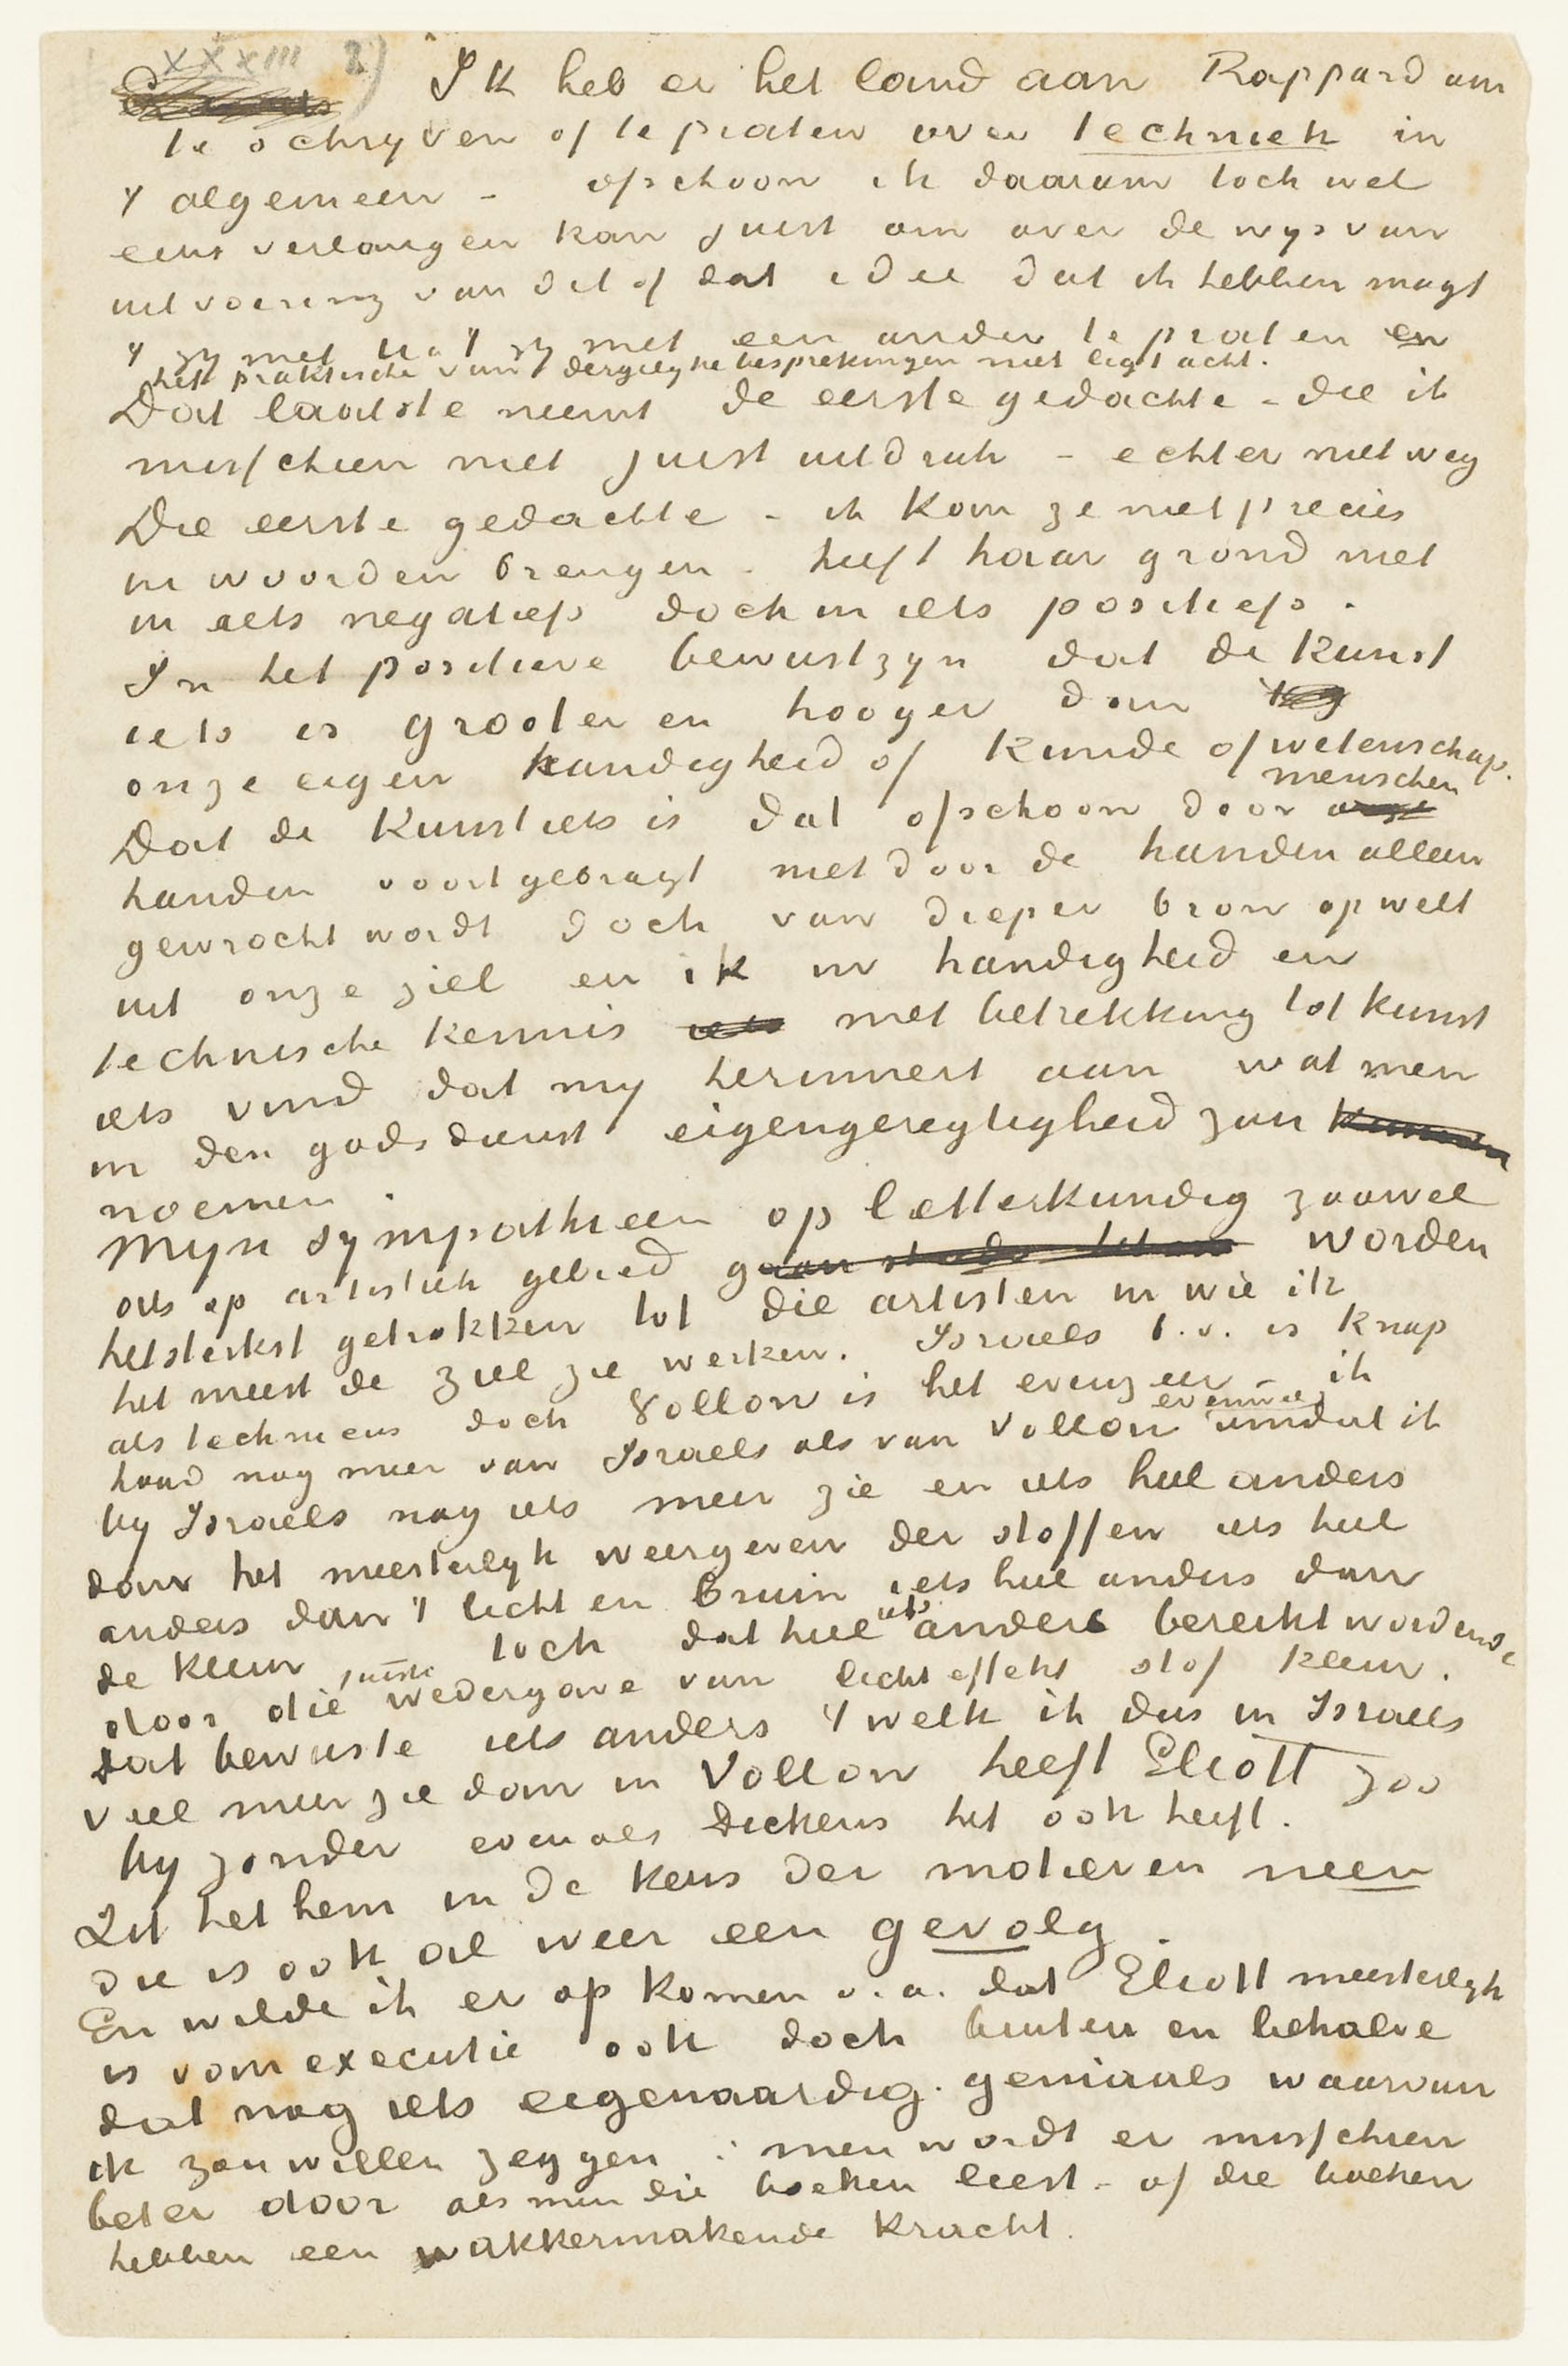 XXXIII 2)
Ik heb er het land aan Rappard om
te schryven of te praten over techniek in
't algemeen – ofschoon ik daarom toch wel
eens verlangen kan juist om over de wys van
uitvoering van dit of dat idee dat ik hebben mogt
't zy met U, 't zy met een ander te praten en
het praktische van dergelyke besprekingen niet ligt acht.
Dat laatste neemt de eerste gedachte – die ik
misschien niet juist uitdruk – echter niet weg
Die eerste gedachte – ik kan ze niet precies
in woorden brengen – heeft haar grond niet
in iets negatiefs doch in iets positiefs.
In het positieve bewustzyn dat de kunst
iets is grooter en hooger dan
onze eigen handigheid of kunde of wetenschap.
Dat de kunst iets is dat ofschoon door menschen
handen voortgebragt niet door de handen alleen
gewrocht wordt doch van dieper bron opwelt
uit onze ziel en ik in handigheid en
technische kennis met betrekking tot kunst
iets vind dat my herinnert aan wat men
in den godsdienst eigengeregtigheid zou
noemen.
Myn sympathieen op letterkundig zoowel
als op artistiek gebied worden
het sterkst getrokken tot die artisten in wie ik
het meest de ziel zie werken. Israels b.v. is knap
als technicus doch Vollon is het evenzeer – ik
houd nog meer van Israels als van Vollon evenwel omdat ik
by Israels nog iets meer zie en iets heel anders
dan het meesterlyk weergeven der stoffen iets heel
anders dan 't licht en bruin iets heel anders dan
de kleur toch dat heel iets anders bereikt wordende
door die juiste wedergave van lichteffekt stof kleur.
Dat bewuste iets anders 't welk ik dus in Israels
veel meer zie dan in Vollon heeft Eliott zoo
byzonder evenals Dickens het ook heeft.
Zit het hem in de keus der motieven neen
die is ook al weer een gevolg.
En wilde ik er op komen o.a. dat Eliott meesterlyk
is van executie ook doch buiten en behalve
dat nog iets eigenaardig-geniaals waarvan
ik zou willen zeggen : men wordt er misschien
beter door als men die boeken leest – of die boeken
hebben een wakkermakende kracht.